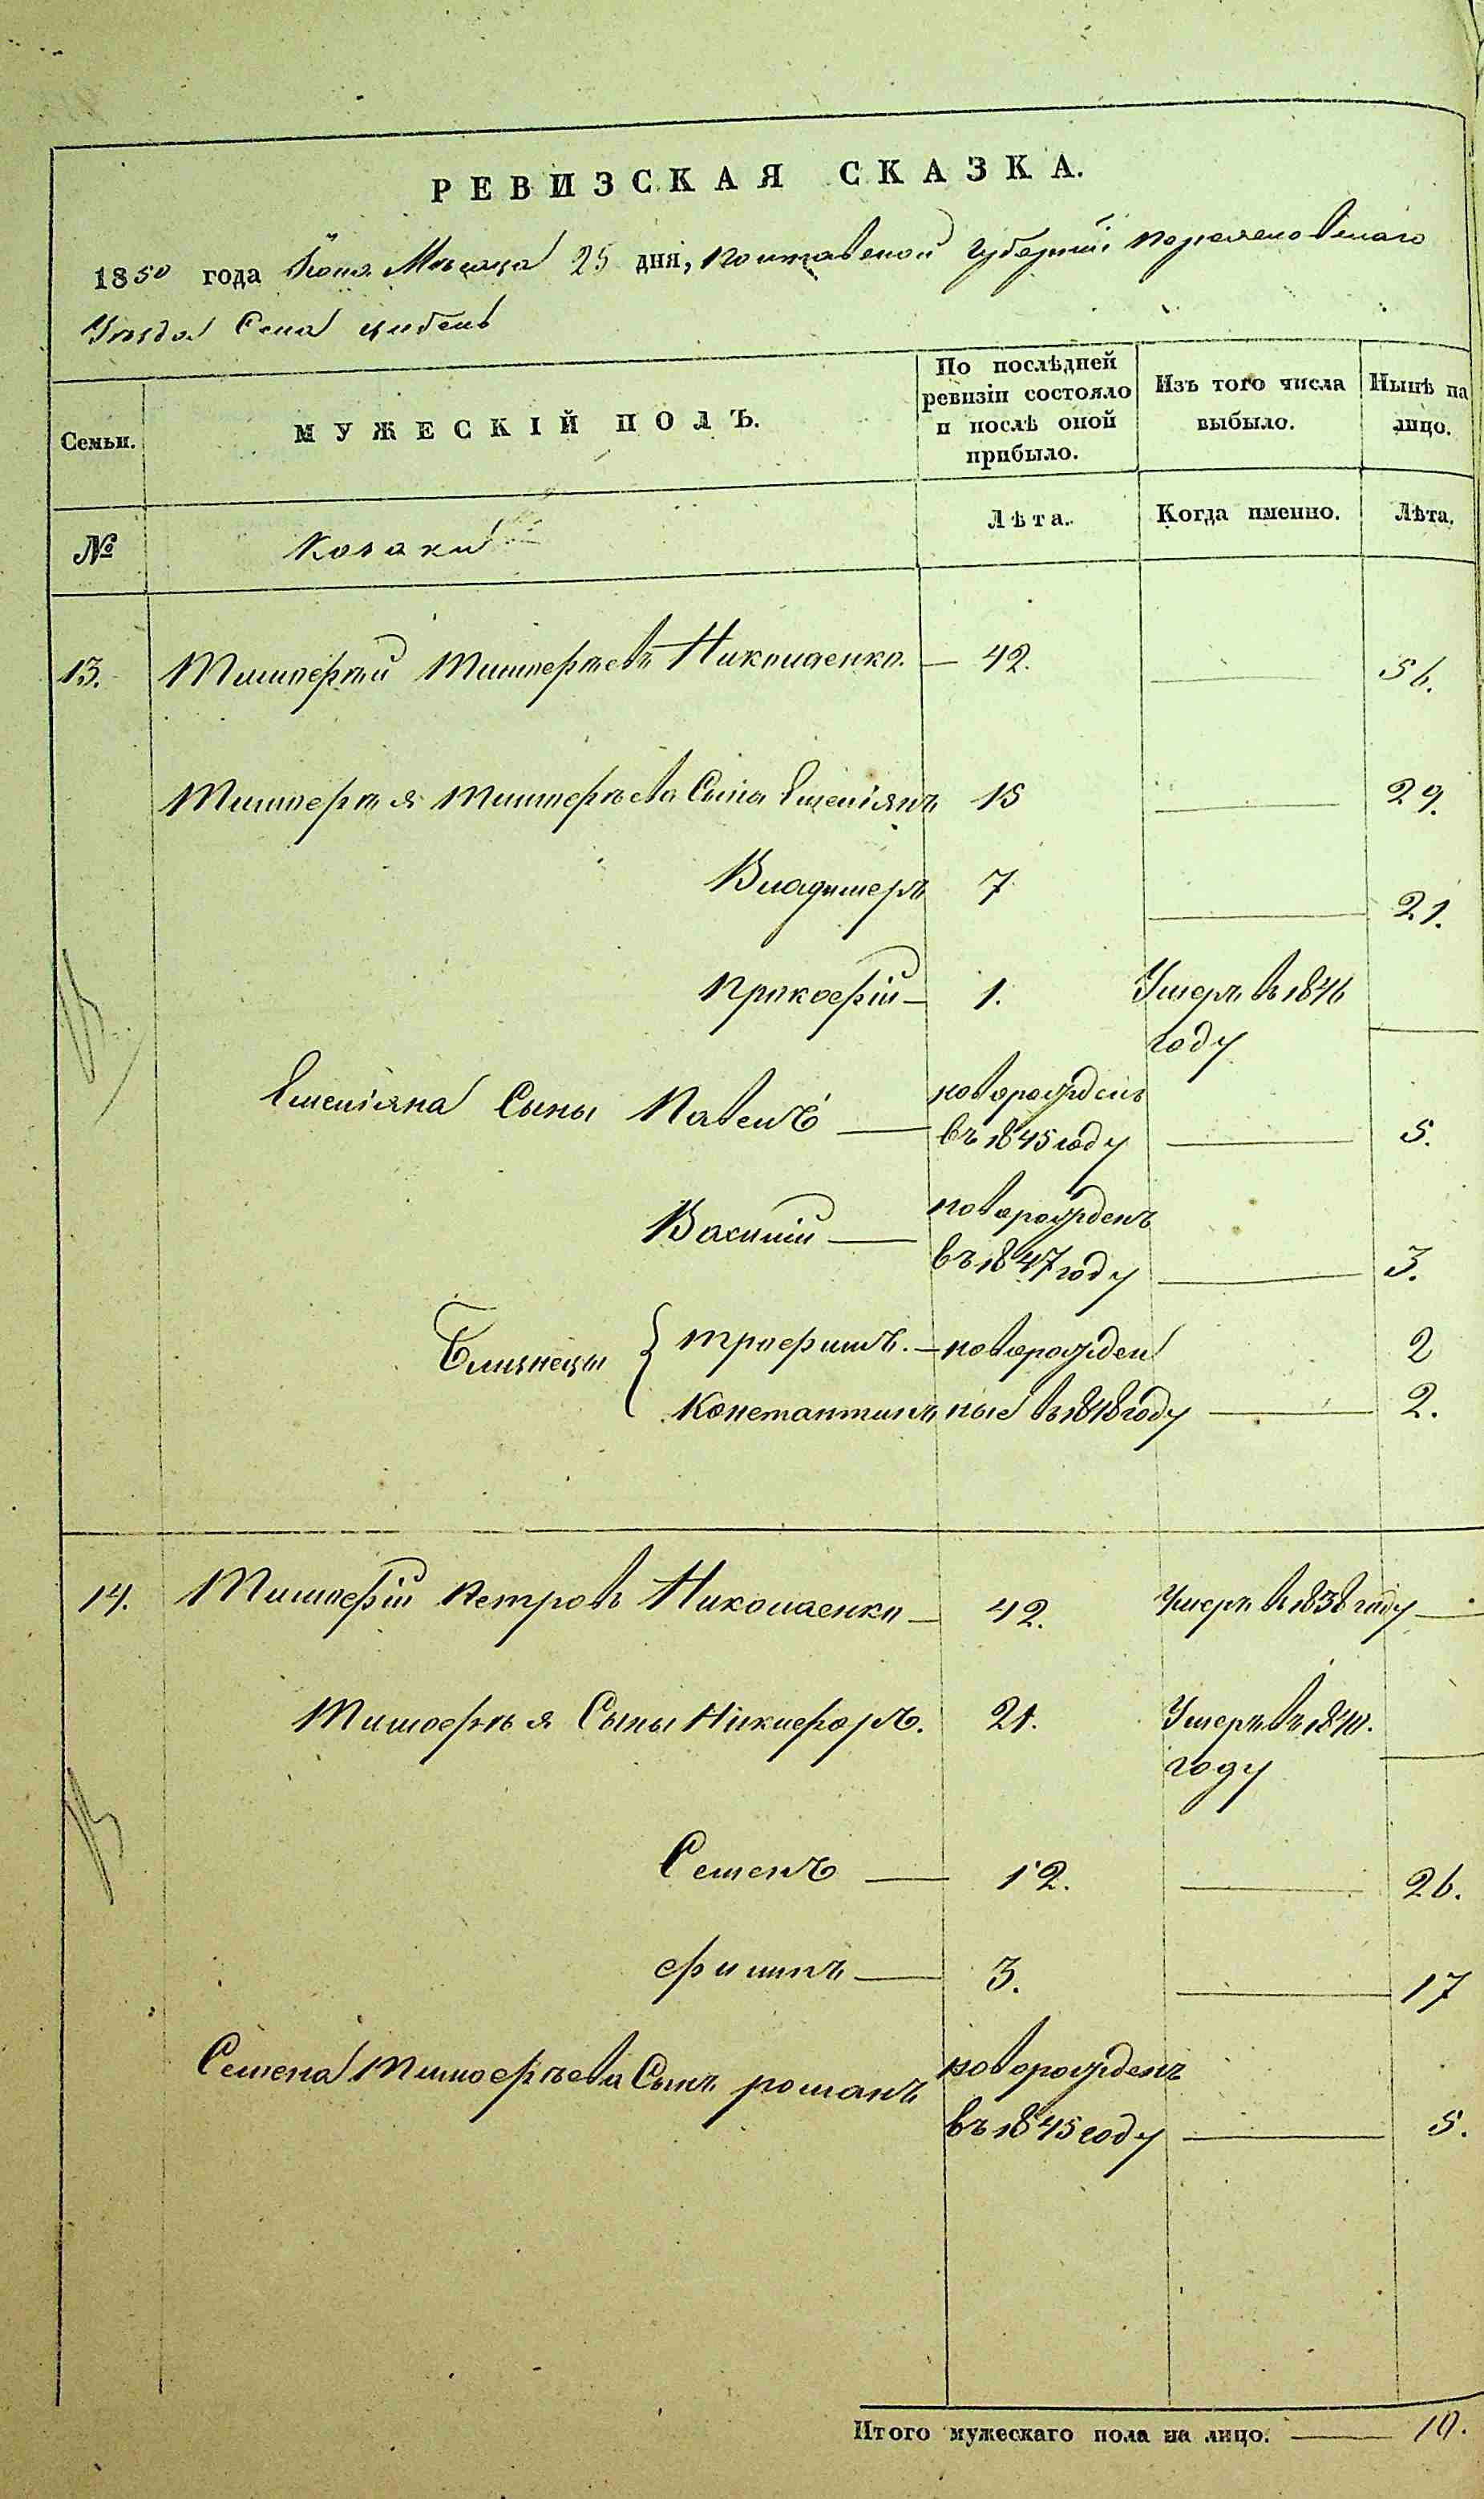 РЕВИЗСКАЯ СКАЗКА.
1850 года Іюня Мѣсяца 25 дня, Полтавской Губерніи Переяславскаго
Уѣзда Села Цибель
Семьи.
МУЖЕСКІЙ ПОЛЪ.
По послѣдней ревизіи состояло и послѣ оной прибыло.
Изъ того числа выбыло.
Нынѣ на лицо.
№
Козаки
Лѣта.
Когда именно.
Лѣта.
13. Тимофѣй Тимофѣевъ Николаенко — 42. — 56.
Тимофѣя Тимофѣева Сыны Емеліянъ 15 — 29.
Владимеръ 7 — 21.
Прокофій — 1. Умеръ въ 1846
году —
Емеліяна Сыны Павелъ — новорожденъ
въ 1845 году — 5.
Василій — новорожденъ
въ 1847 году — 3.
Близнецы { Трофимъ. — новорожден 2
Константинъ ные въ 1848 году — 2.
14. Тимофій Петровъ Николаенко — 42. Умеръ въ 1838 году —
Тимофѣя Сыны Никифоръ. 21. Умеръ въ 1840.
году —
Семенъ — 12. — 26.
Филипъ — 3. — 17
Семена Тимофѣева Сынъ Романъ новорожденъ
въ 1845 году — 5.
Итого мужескаго пола на лицо. — 10.